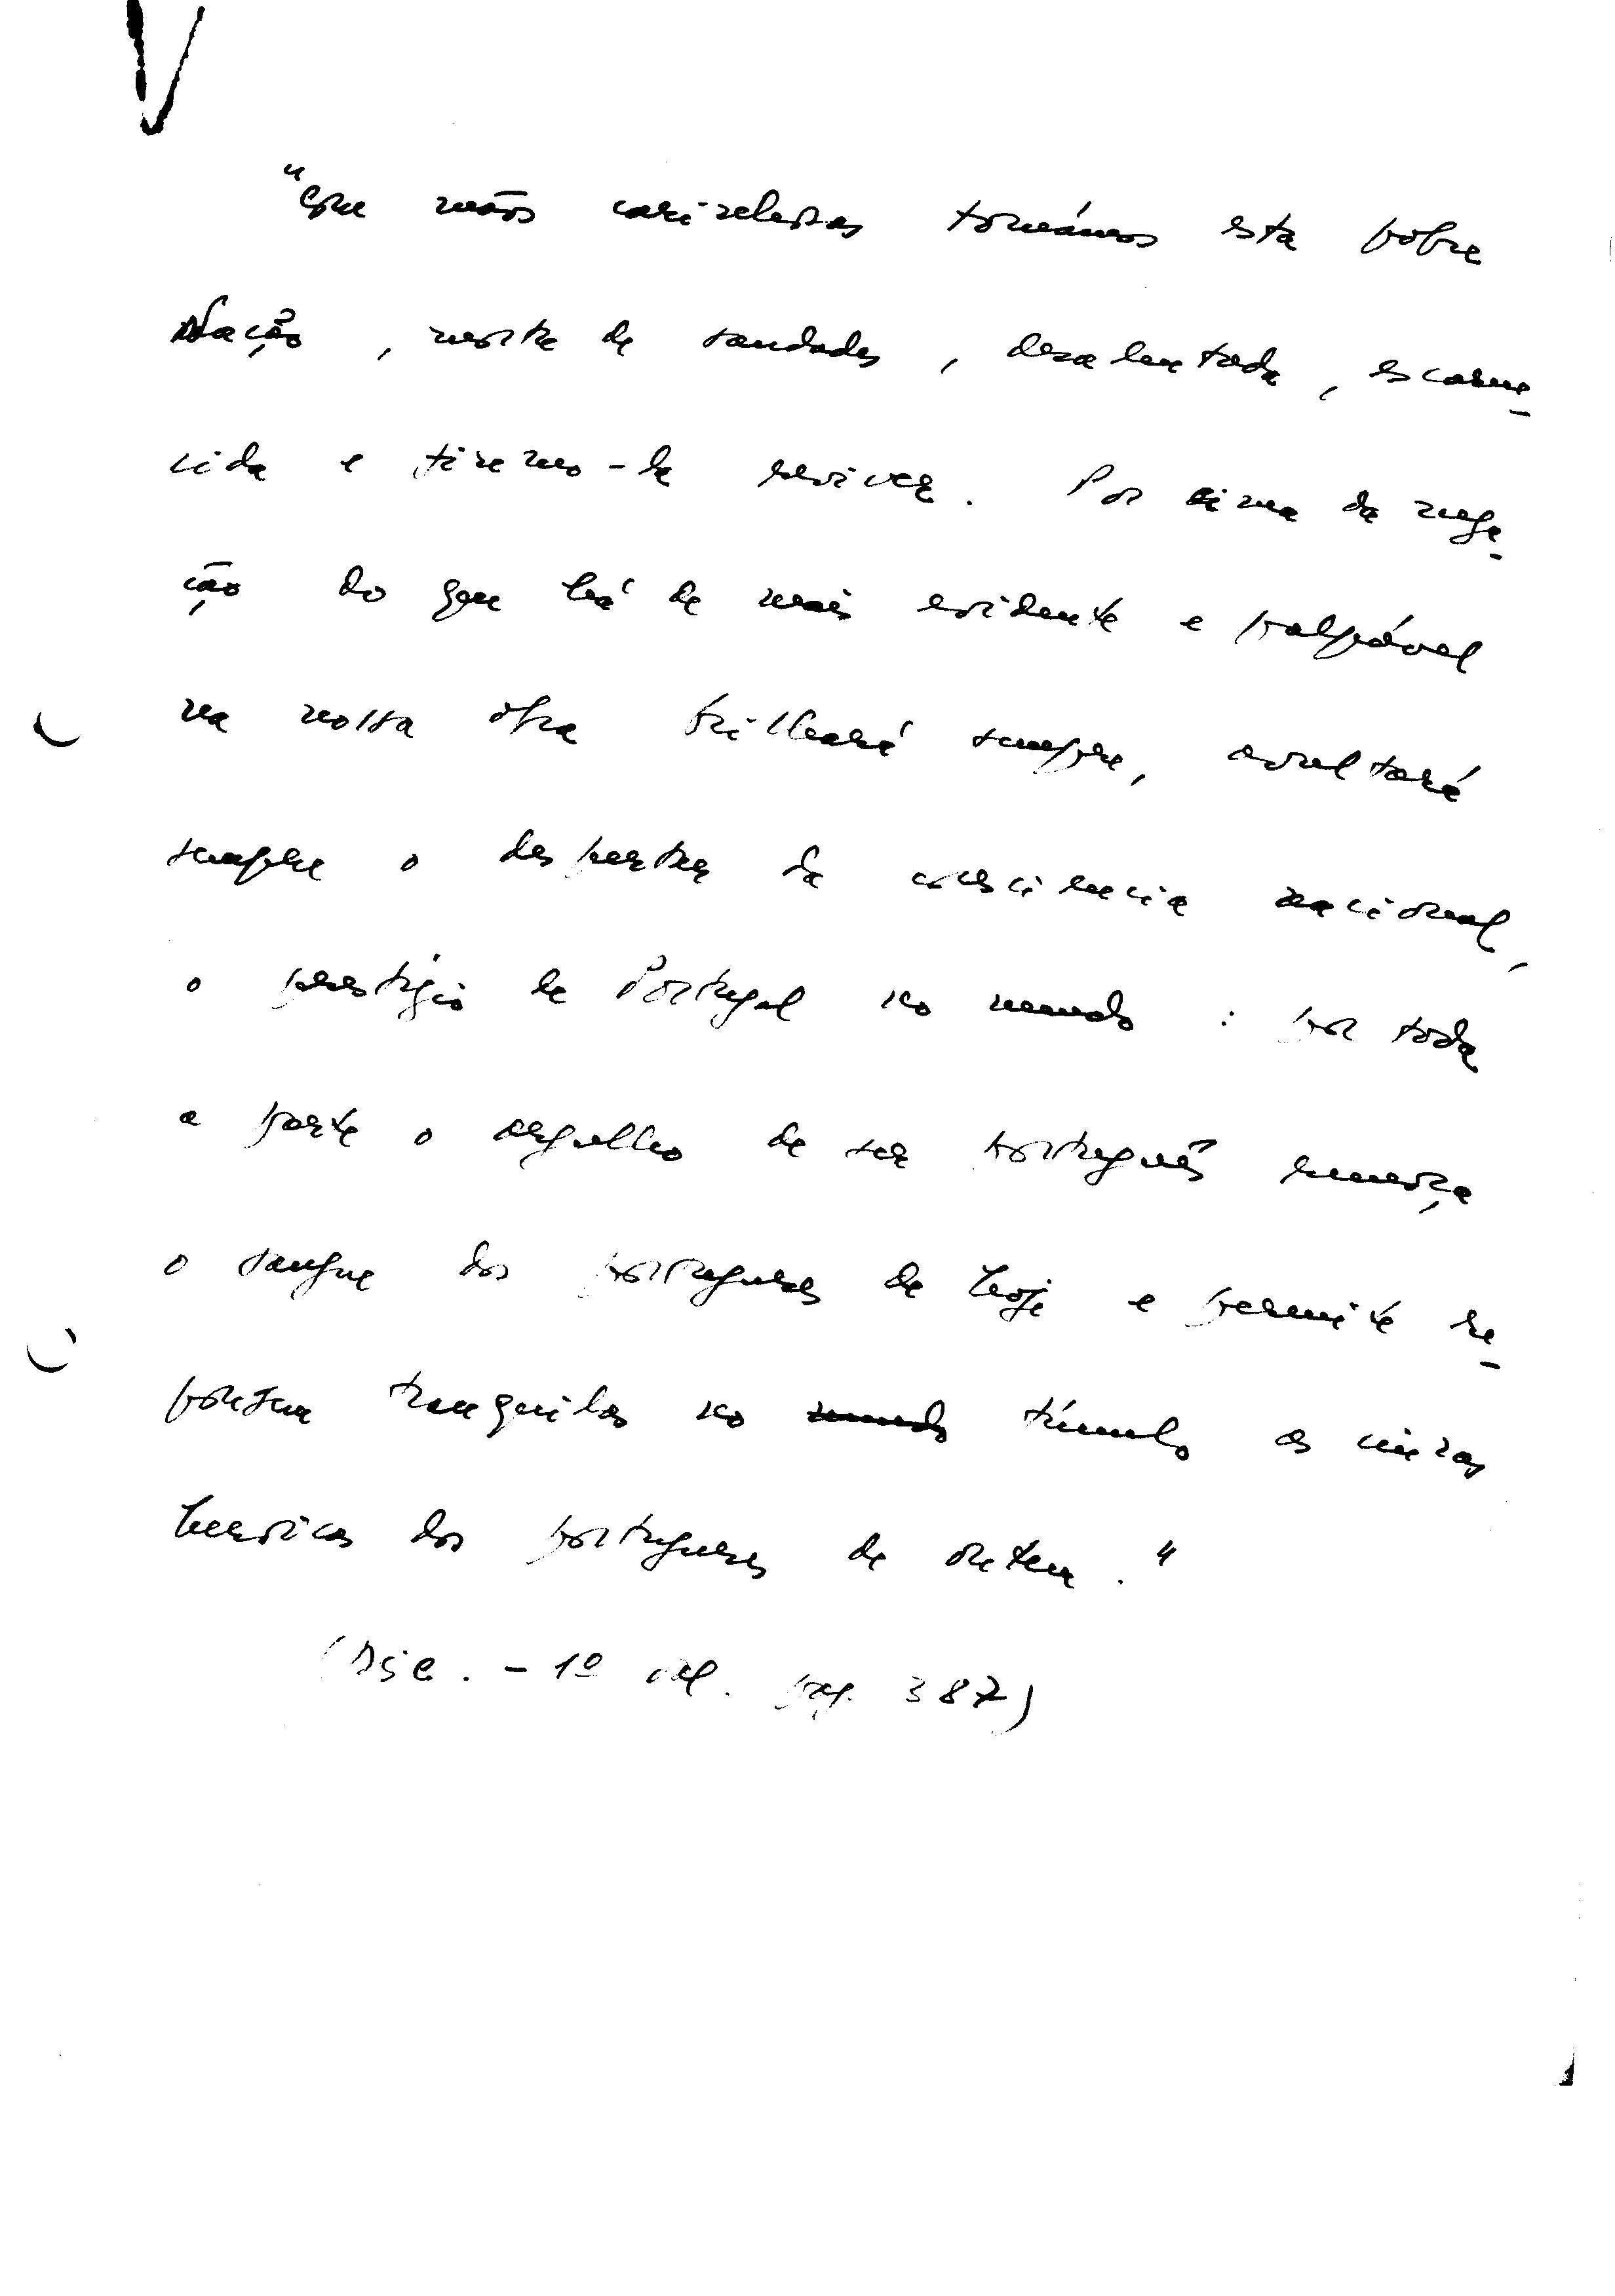 V
"Com mãos carinhosas tomámos esta pobre
Nação, morta de saudades, desalentada, escarne-
cida e fizemo-la reviver. Por cima da nega-
ção do que há de mais evidente e palpável
na nossa obra brilhará sempre, avultará
sempre o despertar da consciencia nacional,
o prestígio de Portugal no mundo : por toda
a parte o orgulho de ser português
o sangue dos portugueses de hoje e permite re-
pousem tranquilas no mundo túmulo as cinzas
heroicas dos portugueses de ontem."
(Disc. - 1º vol. pag. 387)